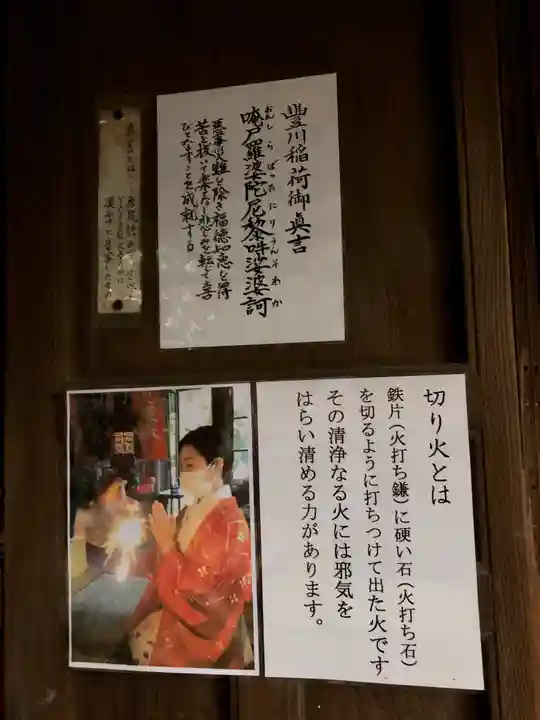 豐川稲荷御眞言
おんしらばったにりうんそわか
唵尸羅婆陀尼黎吽娑婆訶
災難を除き福徳知恵を得
苦を抜いて楽を与え悲しみを転じて喜
びとなすことを成就する
切り火とは
鉄片（火打ち鎌）に硬い石（火打ち石）
を切るように打ちつけて出た火です
その清浄なる火には邪気を
はらい清める力があります。